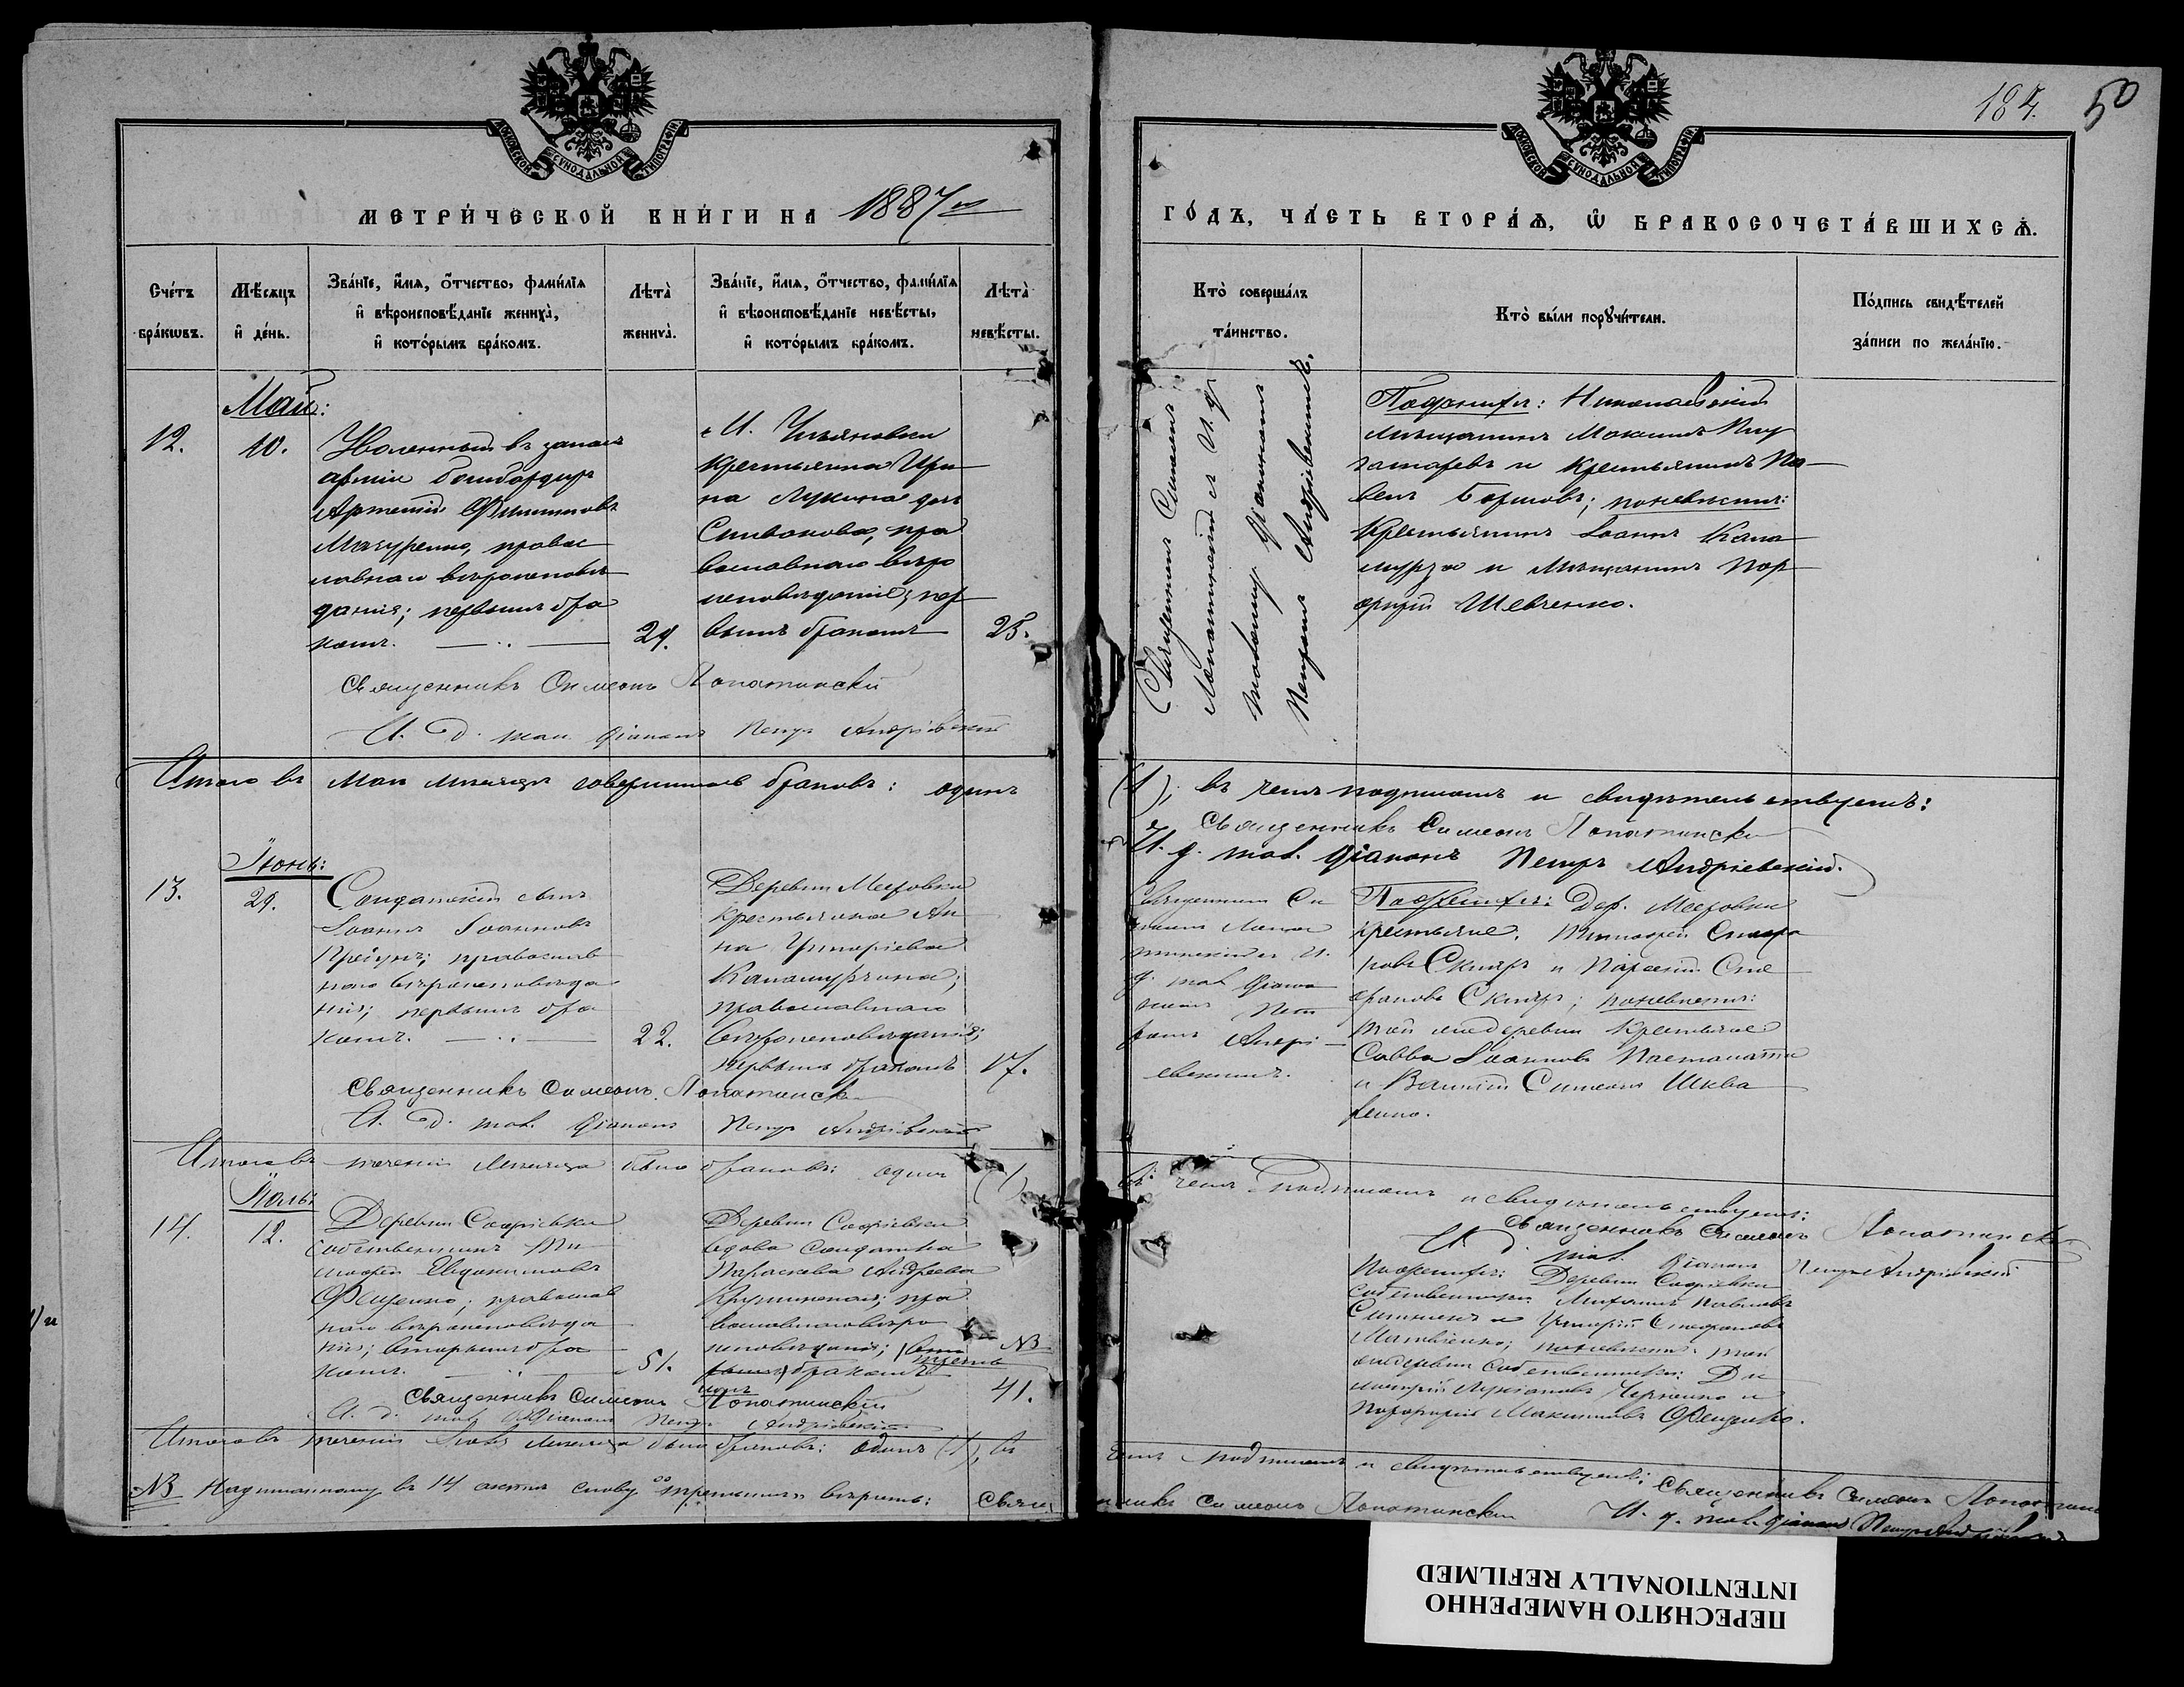 МОСКОВСКОЙ СѴНОДАЛЬНОЙ ТИПОГРАФІИ.
МОСКОВСКОЙ СѴНОДАЛЬНОЙ ТИПОГРАФІИ.
184. 50
МЕТРИ́ЧЕСКОЙ КНИ́ГИ НА 1887
ГО́ДЪ, ЧА́СТЬ ВТОРА́Ѧ, Ѡ҆ БРАКОСОЧЕТА́ВШИХСѦ.
Сче́тъ
бра́кѡвъ.
Мѣ́сѧцъ
и҆ де́нь.
Зва́нїе, и҆́мѧ, ѻ҆́тчество, фами́лїѧ
и҆ вѣроисповѣ́данїе жениха̀,
и҆ кото́рымъ бра́комъ.
Лѣта̀
жениха̀.
Зва́нїе, и҆́мѧ, ѻ҆́тчество, фами́лїѧ
и҆ вѣроисповѣ́данїе невѣ́сты,
и҆ кото́рымъ бра́комъ.
Лѣта̀
невѣ́сты.
Кто̀ соверша́лъ
та́инство.
Кто̀ бы́ли порꙋчи́тели.
По́дпись свидѣ́телей
за́писи по жела́нїю.
Май:
12.
10.
Уволенный въ запасъ
арміи бомбардиръ
Артемій Филиповъ
Мазуренко, правос
лавнаго вѣроисповѣ
данія; первымъ бра
комъ.
29.
М. Ульяновки
крестьянка Ири
на Лукина дочь
Сливакова, пра
вославнаго вѣро
исповѣданія; пер
вымъ бракомъ
25.
Священникъ Симеонъ
Лопатинскій съ И. д.
псаломщ. діакономъ
Петромъ Андріевскимъ.
По женихѣ: Николаевскій
мѣщанинъ Максимъ
и крестьянинъ Па
велъ Борисовъ; по невѣстѣ:
Крестьянинъ Іоаннъ Капа
мурза и мѣщанинъ Пор
фирій Шевченко.
Священникъ Симеонъ Лопатинскій
И. д. псал. діаконъ Петръ Андріевскій
Итого въ Маѣ мѣсяцѣ совершилось браковъ: одинъ
(1), въ чемъ подписомъ и свидѣтельствуемъ:
Священникъ Симеонъ Лопатинскій
И. д. псал. діаконъ Петръ Андріевскій.
Іюнь:
13.
29.
Солдатскій сынъ
Іоаннъ Іоанновъ
православ
наго вѣроисповѣда
нія; первымъ бра
комъ.
22.
Деревни Мееровки
крестьянка Ан
на Григоріева
Капамурзина;
православнаго
вѣроисповѣданія;
первымъ бракомъ
17.
Священникъ Си
меонъ Лопа
тинскій съ И.
д. псал. діако
номъ Пет
ромъ Андрі
евскимъ.
По женихѣ: Дер. Мееровки
крестьяне: Тимофей
Скляръ и Сте
фановъ Скляръ; по невѣстѣ:
той же деревни крестьяне
Савва Іоанновъ
и Симеонъ Шква
ренко.
Священникъ Симеонъ Лопатинскій
И. д. псал. діаконъ Петръ Андріевскій
Итого въ теченіи мѣсяца было браковъ: одинъ (1)
въ чемъ подписомъ и свидѣтельствуемъ:
Священникъ Симеонъ Лопатинскій
И. д. псал. діаконъ Петръ Андріевскій
Іюль:
14.
12.
Деревни Софіевки
собственникъ Ти
мофей Евдокимовъ
Фещенко; православ
наго вѣроисповѣда
нія; вторымъ бра
комъ.
51.
Деревни Софіевки
вдова солдатка
Параскева Андреева
пра
вославнаго вѣро
исповѣданія;
бракомъ
NB
41.
По женихѣ: Деревни Софіевки
собственники: Михаилъ Павловъ
и Григорій Стефановъ
Матвіенко; по невѣстѣ: той
же деревни собственники: Ди
митрій Лукіановъ Черненко и
Порфирій Максимовъ Фещенко.
Священникъ Симеонъ Лопатинскій
И. д. псал. діаконъ Петръ Андріевскій
Итого въ теченіи Іюля мѣсяца было браковъ: одинъ (1), въ
чемъ подписомъ и свидѣтельствуемъ: Священникъ Симеонъ Лопатинскій
NB Надписанному въ 14 актѣ слову „третьимъ" вѣрить: Священ
никъ Симеонъ Лопатинскій И. д. псал. діаконъ Петръ Андріевскій
ПЕРЕСНЯТО НАМЕРЕННО
INTENTIONALLY REFILMED